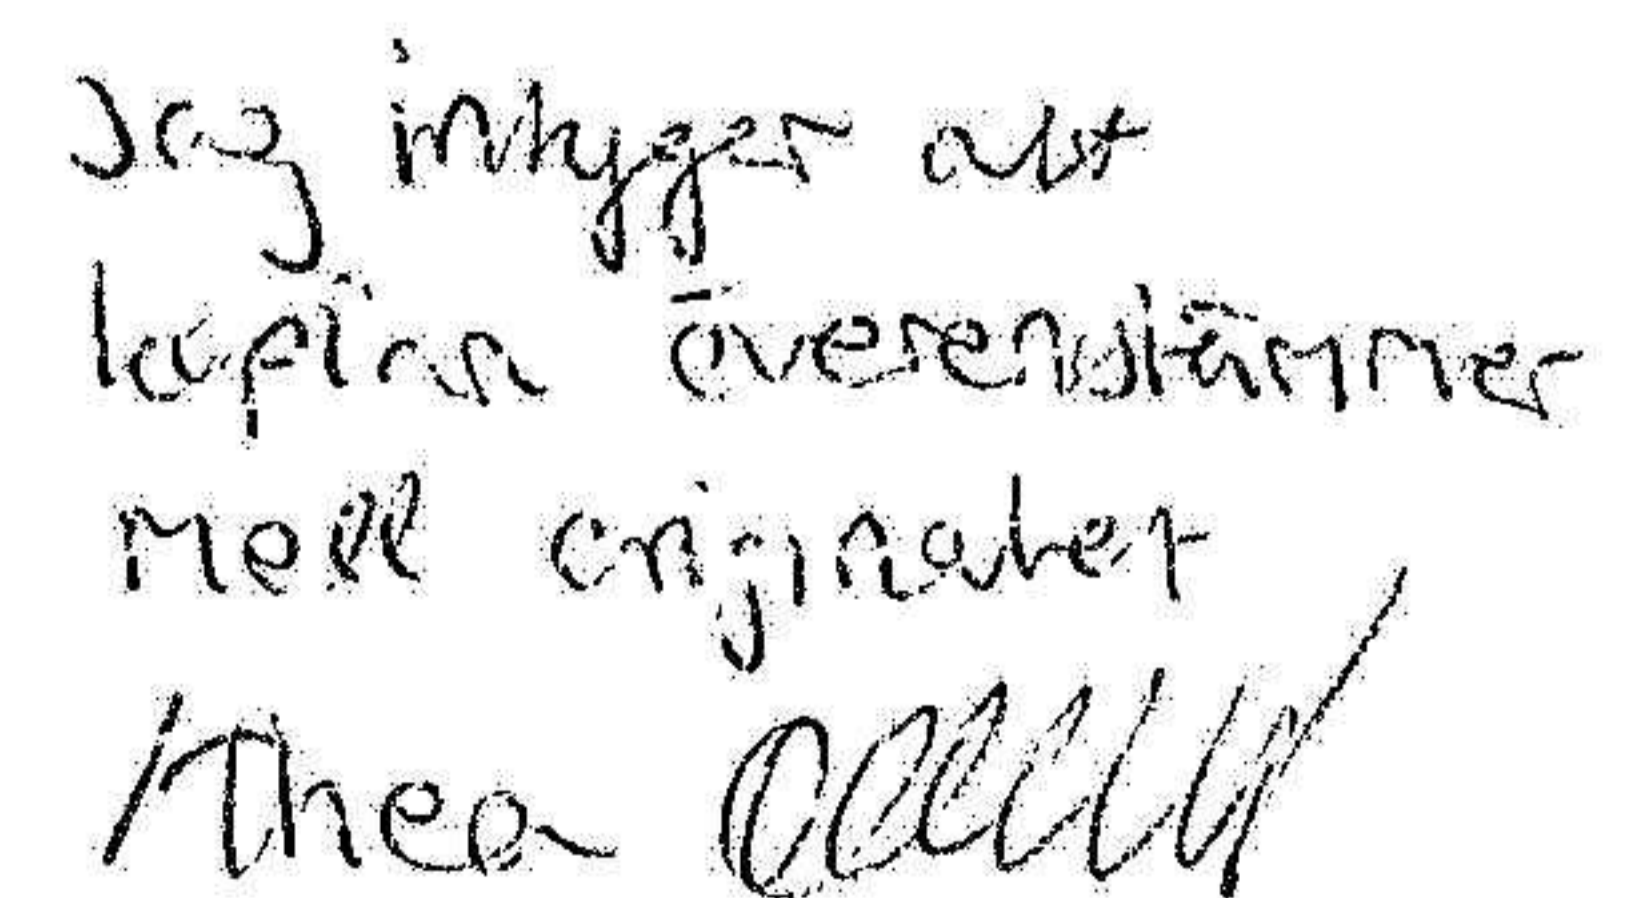 Jag intygar att
kopian överensstämmer
med originalet
/Thea